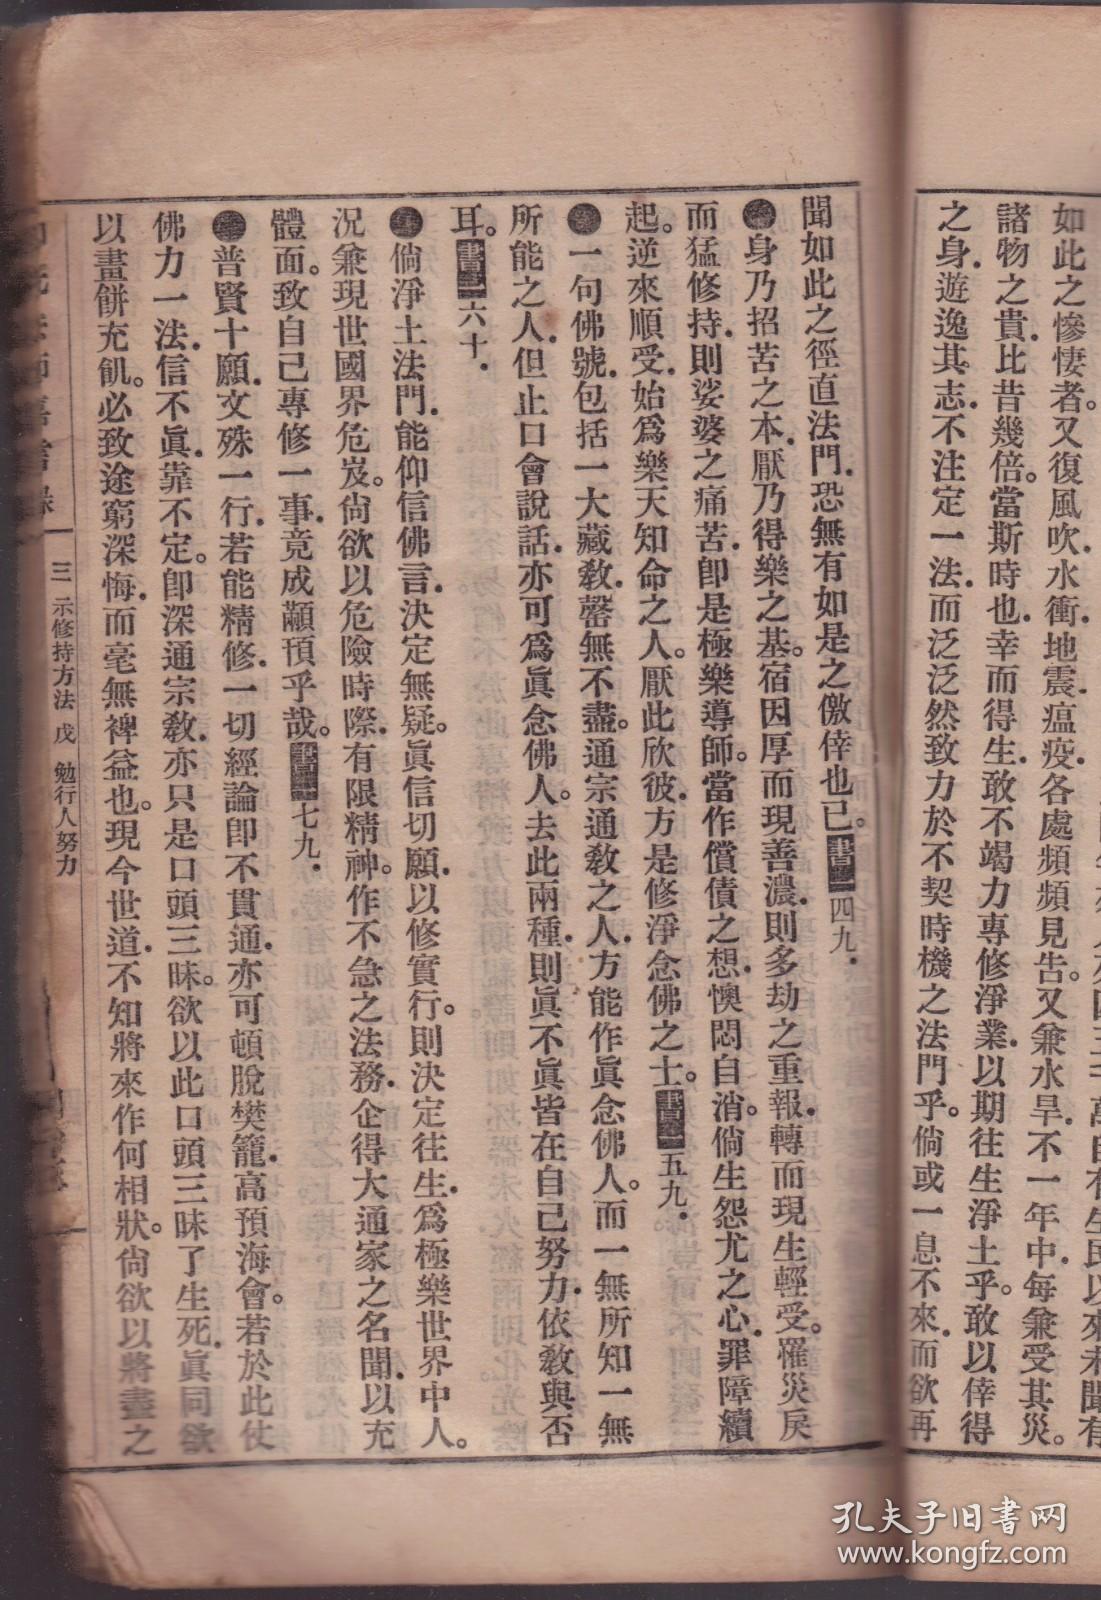 如此之慘悽者。又復風吹.水衝.地震.瘟疫.各處頻頻見告。又兼水旱.不一年中.每兼受其災。
諸物之貴.比昔幾倍。當斯時也.幸而得生.敢不竭力專修淨業.以期往生淨土乎。敢以倖得
之身.遊逸其志.不注定一法.而泛泛然致力於不契時機之法門乎。倘或一息不來.而欲再
聞如此之徑直法門.恐無有如是之僥倖也已。書一四九.
身乃招苦之本.厭乃得樂之基。宿因厚而現善濃.則多劫之重報.轉而現生輕受。罹災戾
而猛修持.則娑婆之痛苦.卽是極樂導師。當作償債之想.懊悶自消。倘生怨尤之心.罪障續
起。逆來順受.始爲樂天知命之人。厭此欣彼.方是修淨念佛之士。五九.
一句佛號.包括一大藏敎.罄無不盡。通宗通敎之人.方能作眞念佛人。而一無所知一無
所能之人.但止口會說話.亦可爲眞念佛人。去此兩種.則眞不眞皆在自己努力.依敎與否
耳。書一六十.
倘淨土法門.能仰信佛言.決定無疑。眞信切願.以修實行。則決定往生.爲極樂世界中人。
況兼現世國界危岌。尙欲以危險時際.有限精神。作不急之法務.企得大通家之名聞.以充
體面。致自己專修一事.竟成顢頇乎哉。七九.
普賢十願.文殊一行.若能精修.一切經論卽不貫通.亦可頓脫樊籠.高預海會。若於此仗
佛力一法.信不眞.靠不定。卽深通宗敎.亦只是口頭三昧。欲以此口頭三昧了生死.眞同欲
以畫餅充飢。必致途窮深悔.而毫無裨益也。現今世道.不知將來作何相狀。尙欲以將盡之
三 示修持方法 戊 勉行人努力
孔夫子旧书网
www.kongfz.com